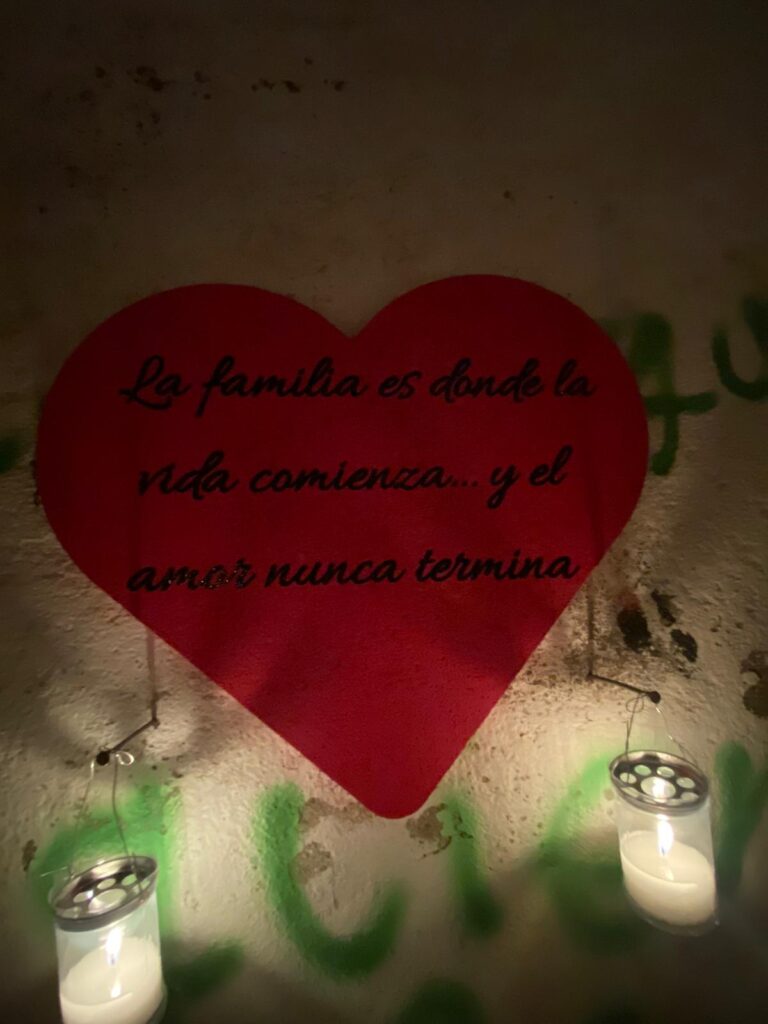 La familia es donde la
vida comienza... y el
amor nunca termina